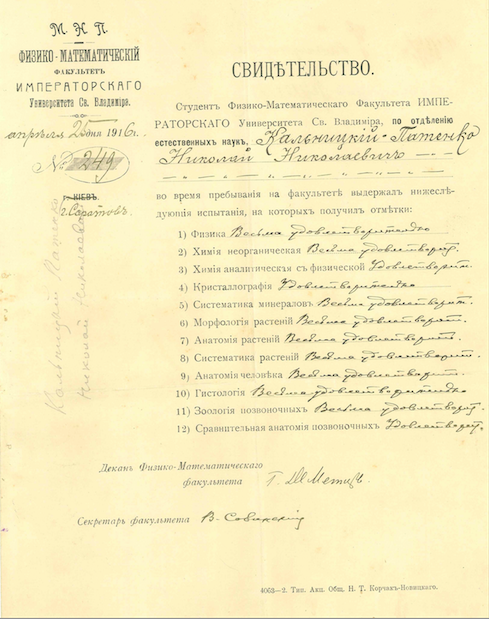 М. Н. П.
ФИЗИКО-МАТЕМАТИЧЕСКІЙ
ФАКУЛЬТЕТЪ
ИМПЕРАТОРСКАГО
Университета Св. Владиміра.
апрѣля 25 дня 1916 г.
№ 249
г. КІЕВЪ.
г. Саратовъ
Кальницкій-Патенко
Николай Николаевичъ
СВИДѢТЕЛЬСТВО.
Студентъ Физико-Математическаго Факультета ИМПЕ-
РАТОРСКАГО Университета Св. Владиміра, по отдѣленію
естественныхъ наукъ, Кальницкій-Патенко
Николай Николаевичъ
во время пребыванія на факультетѣ выдержалъ нижеслѣ-
дующія испытанія, на которыхъ получилъ отмѣтки:
1) Физика Весьма удовлетворительно
2) Химія неорганическая Весьма удовлетв.
3) Химія аналитическая съ физической Удовлетворит.
4) Кристаллографія Удовлетворительно
5) Систематика минераловъ Весьма удовлетворит.
6) Морфологія растеній Весьма удовлетворит.
7) Анатомія растеній Весьма удовлетворит.
8) Систематика растеній Весьма удовлетворит.
9) Анатомія человѣка Весьма удовлетворит.
10) Гистологія Весьма удовлетворительно
11) Зоологія позвоночныхъ Весьма удовлетвор.
12) Сравнительная анатомія позвоночныхъ Удовлетворит.
Деканъ Физико-Математическаго
факультета Г. Де Метцъ
Секретарь факультета В. Совинскій
4053—2. Тип. Акц. Общ. Н. Т. Корчакъ-Новицкаго.